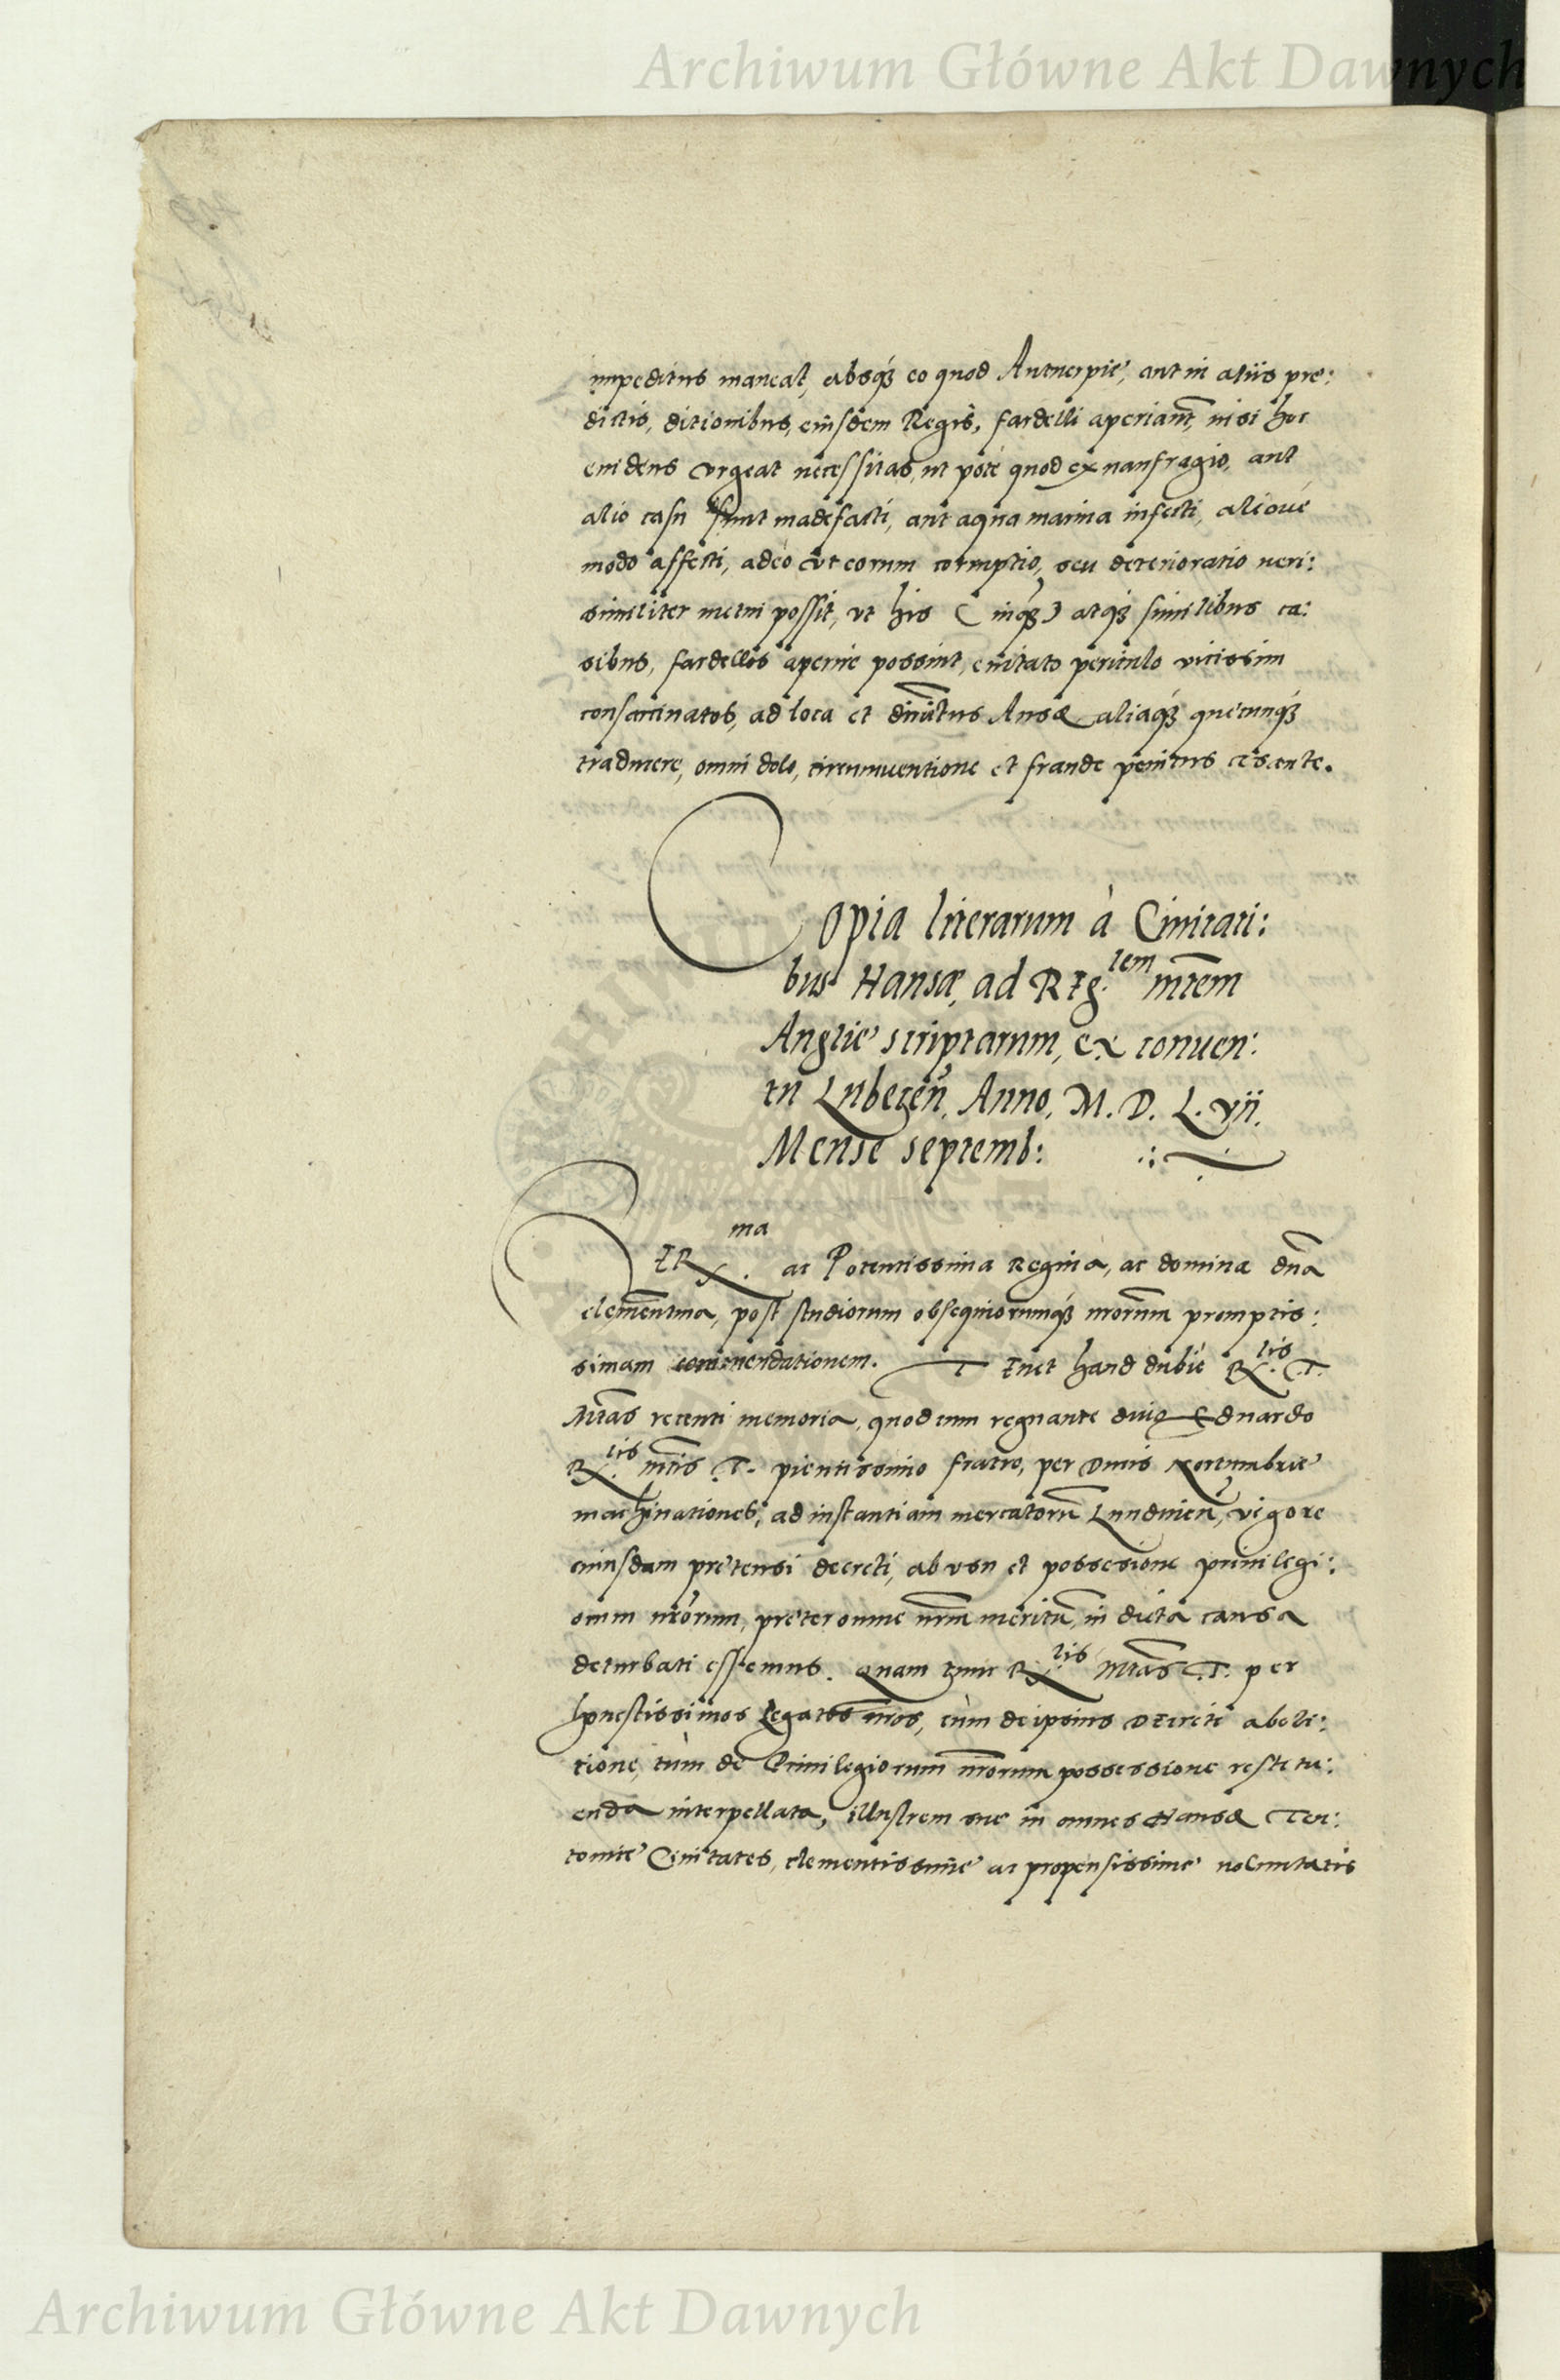 Archiwum Główne Akt Dawnych
impeditus maneat, absq́ʒ eo quod Antuerpie, aut in aliis pre:
dictis, ditionibus, eiusdem Regis, fardelli aperiant̄, nisi hoc
euidens vrgeat necessitas, ut pote quod ex naufragio, aut
alio casu sint madefacti, aut aqua marina infecti, alioue
modo affecti, adeò vt eorum corruptio, seu deterioratio ueri:
similiter metui possit, vt his ( inq́ʒ ) atq́ʒ similibus ca:
sibus, fardellos aperire possint, euitato periculo vicissim
consarcinatos, ad loca et Ansæ aliaq́ʒ quecunq́ʒ
traducere, omni dolo, circumuentione et fraude penitus
Copia literarum à Ciuitati:
bus Hansæ, ad Reg.tem mt̄em
Anglie scriptarum, ex conuen:
tu Lubecen̄, Anno, M. D. L. vii.
Mense septemb:
SER.ma ac Potentissima Regina, ac domina dn̄a
clementma, post studiorum obsequiorumq́ʒ nrorum promptis:
simam commendationem. Tenet haud dubiè R.tis T.
Mt̄as recenti memoria, quod cum regnante diuo Eduardo
R.tis mt̄is T. pientissimo fratre, per Ducis Nortumbrie
machinationes, ad instantiam mercatorū Lundinen̄, vigore
cuiusdam pretensi decreti, ab vsu et possesione priuilegi:
orum nr̄orum, preter omne nrm̄ meritū, in dicta causa
deturbati essemus. Quam tunc R.tis Mt̄as T. per
honestissimos Legatos nr̄os, cùm de ipsius Decreti aboli:
tione, tùm de Priuilegiorum nr̄orum possessione restitu:
enda interpellata, illustrem sue in omnes Hansæ Teu:
tonice Ciuitates, clementissime ac propensissime voluntatis
Archiwum Główne Akt Dawnych